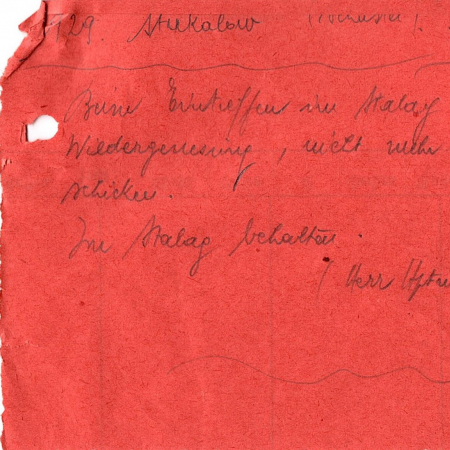 929. Stukalow
Beim Eintreffen im Stalag
Wiedergenesung, nicht mehr
schicken.
Im Stalag behalten.
(Herr Hptm